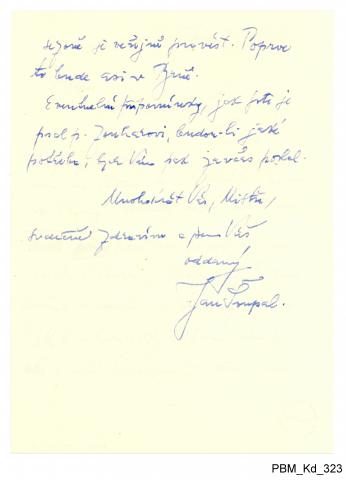 sezoně je veřejně provést. Poprvé
to bude asi v Brně.
Eventuelní připomínky, jak jste je
psal p. Junkarovi, budou-li jaké
potřeba, bych Vám pak jak vás poslal.
Mnohokrát Vás, Mistře,
srdečně zdravím a jsem Váš
oddaný
Jan Šrupal.
PBM_Kd_323